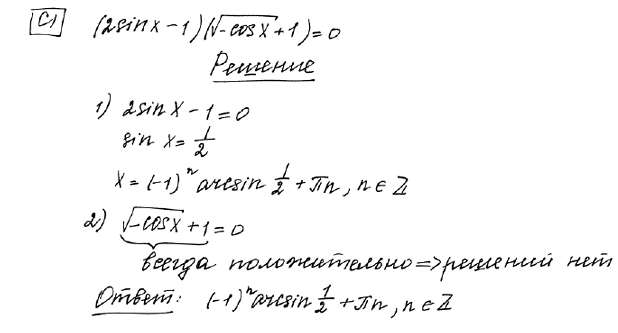 C1 (2sin x − 1)(√−cos x + 1) = 0
Решение
1) 2sin x − 1 = 0
sin x = 1/2
x = (−1)ⁿ arcsin 1/2 + πn, n ∈ Z
2) √−cos x + 1 = 0
всегда положительно => решений нет
Ответ: (−1)ⁿ arcsin 1/2 + πn, n ∈ Z